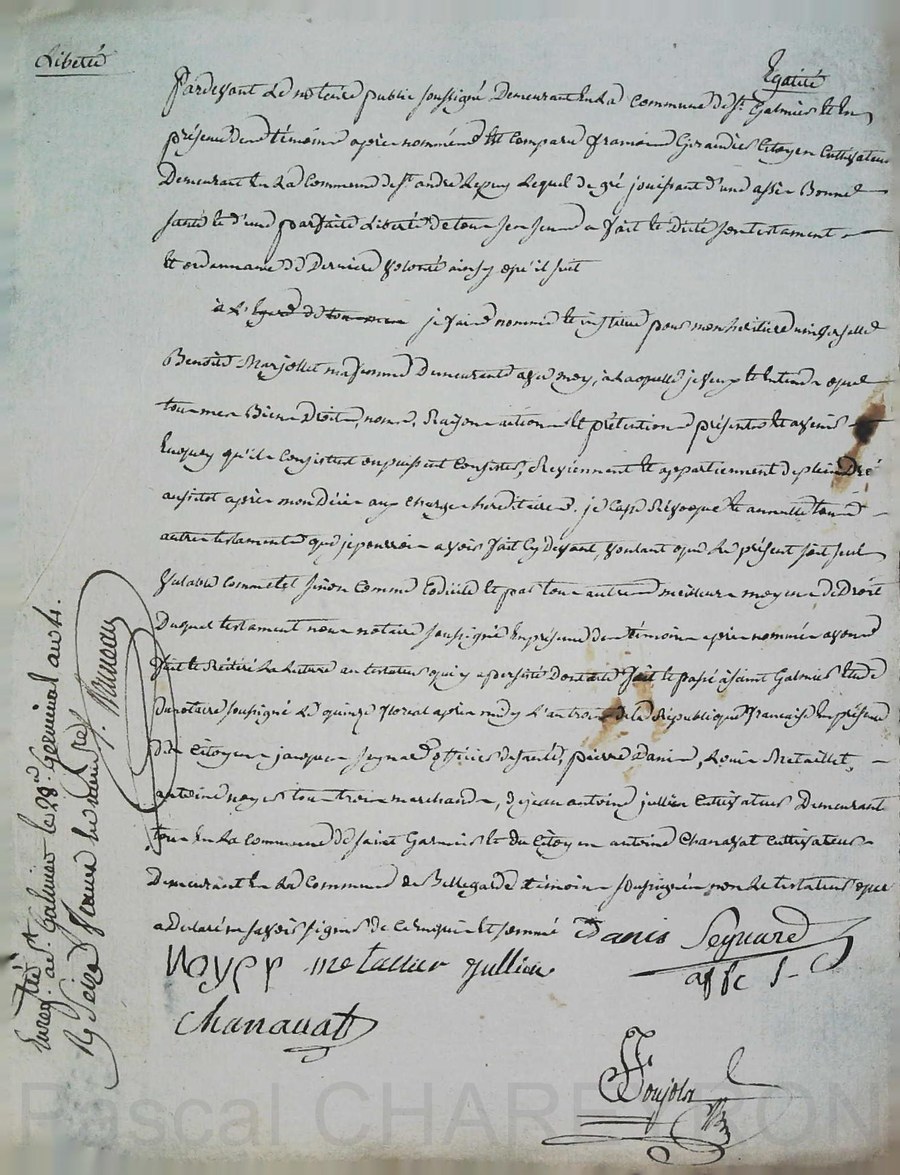 Liberté
Egalité
Pardevant Le notaire public soussigné Demeurant En La Commune de St. Galmier Et En
présence des témoins après nommés Est Comparu françois Giraudier Citoyen Cultivateur
Demeurant En La Commune de St. andré Le puy Lequel de gré jouissant d'une assès Bonne
santé Et d'une parfaite Liberté de tous ses sens a fait Et Dicté son testament
Et ordonnance de Derniere volonté ainsy qu'il suit
à L'Egard de je fais nomme Et institue pour mon heritiere universelle
Benoite Marjollet ma femme Demeurante avec moy, à Laquelle je veux Et Entend que
tous mes Biens Droits, noms, Raisons actions Et prétentions présents Et avenir
Enquoy qu'ils Consistent ou puissent Consister, Reviennent Et appartiennent de plein Dré
ausitot après mon Décès aux charges hereditaires. je Casse Révoque Et annulle tous
autres testaments que je pourrois avoir fait Cy devant, voulant que Le présent soit seul
valable Comme tel sinon Comme Codicile Et par tous autres meilleurs moyens de Droit
Duquel testament nous notaire soussigné En présence des témoins après nommés avons
fait Et Réitéré La Lecture au testateur qui y a persisté Dont acte fait Et passé à saint Galmier Etude
du notaire soussigné Le quinze floreal après midy L'an trois de la République francaise En présence
des Citoyens jacques Seynard officier de santé, pierre Danis, Louis Metaillet,
antoine noyer tous trois marchands, & jean antoine jullien Cultivateur Demeurant
tous En La Commune de saint Garmier Et du Citoyen antoine Chanavat Cultivateur
Demeurant En La Commune de Bellegarde témoins soussignés non Le testateur qui
a Declaré ne savoir signer de Ce enquis Et sommé Danis Seynard
Noyer metailler jullien offc S-
Chanavat
Enreg. à St. Galmier le 28. Germinal an 4.